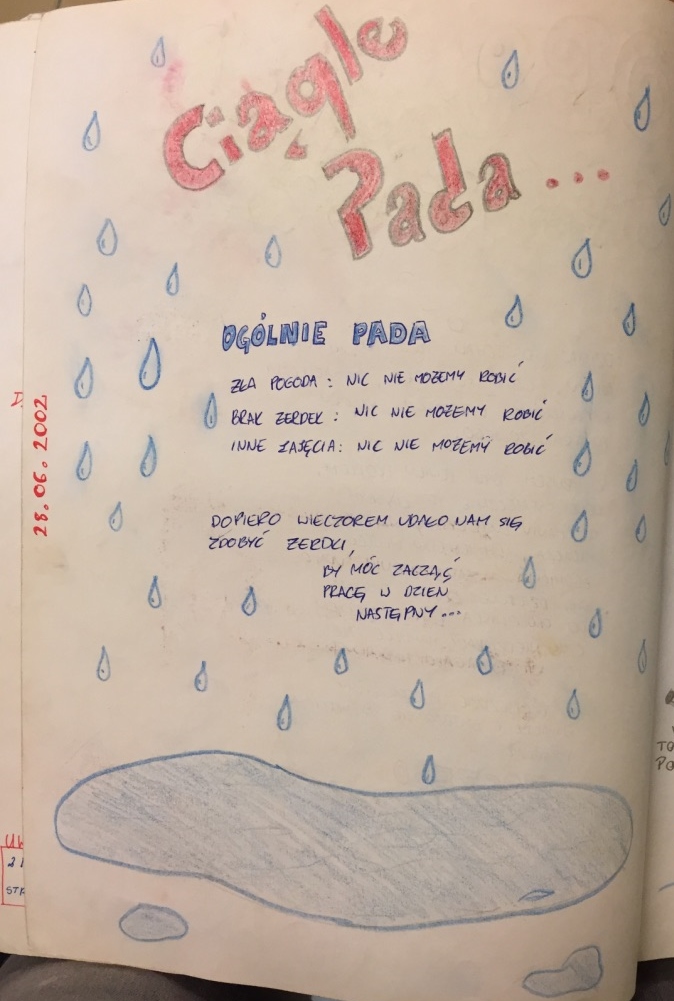 Ciągle
Pada...
28.06.2002
OGÓLNIE PADA
ZŁA POGODA : NIC NIE MOŻEMY ROBIĆ
BRAK ŻERDEK : NIC NIE MOŻEMY ROBIĆ
INNE ZAJĘCIA: NIC NIE MOŻEMY ROBIĆ
DOPIERO WIECZOREM UDAŁO NAM SIĘ
ZDOBYĆ ŻERDKI,
BY MÓC ZACZĄĆ
PRACĘ W DZIEŃ
NASTĘPNY...